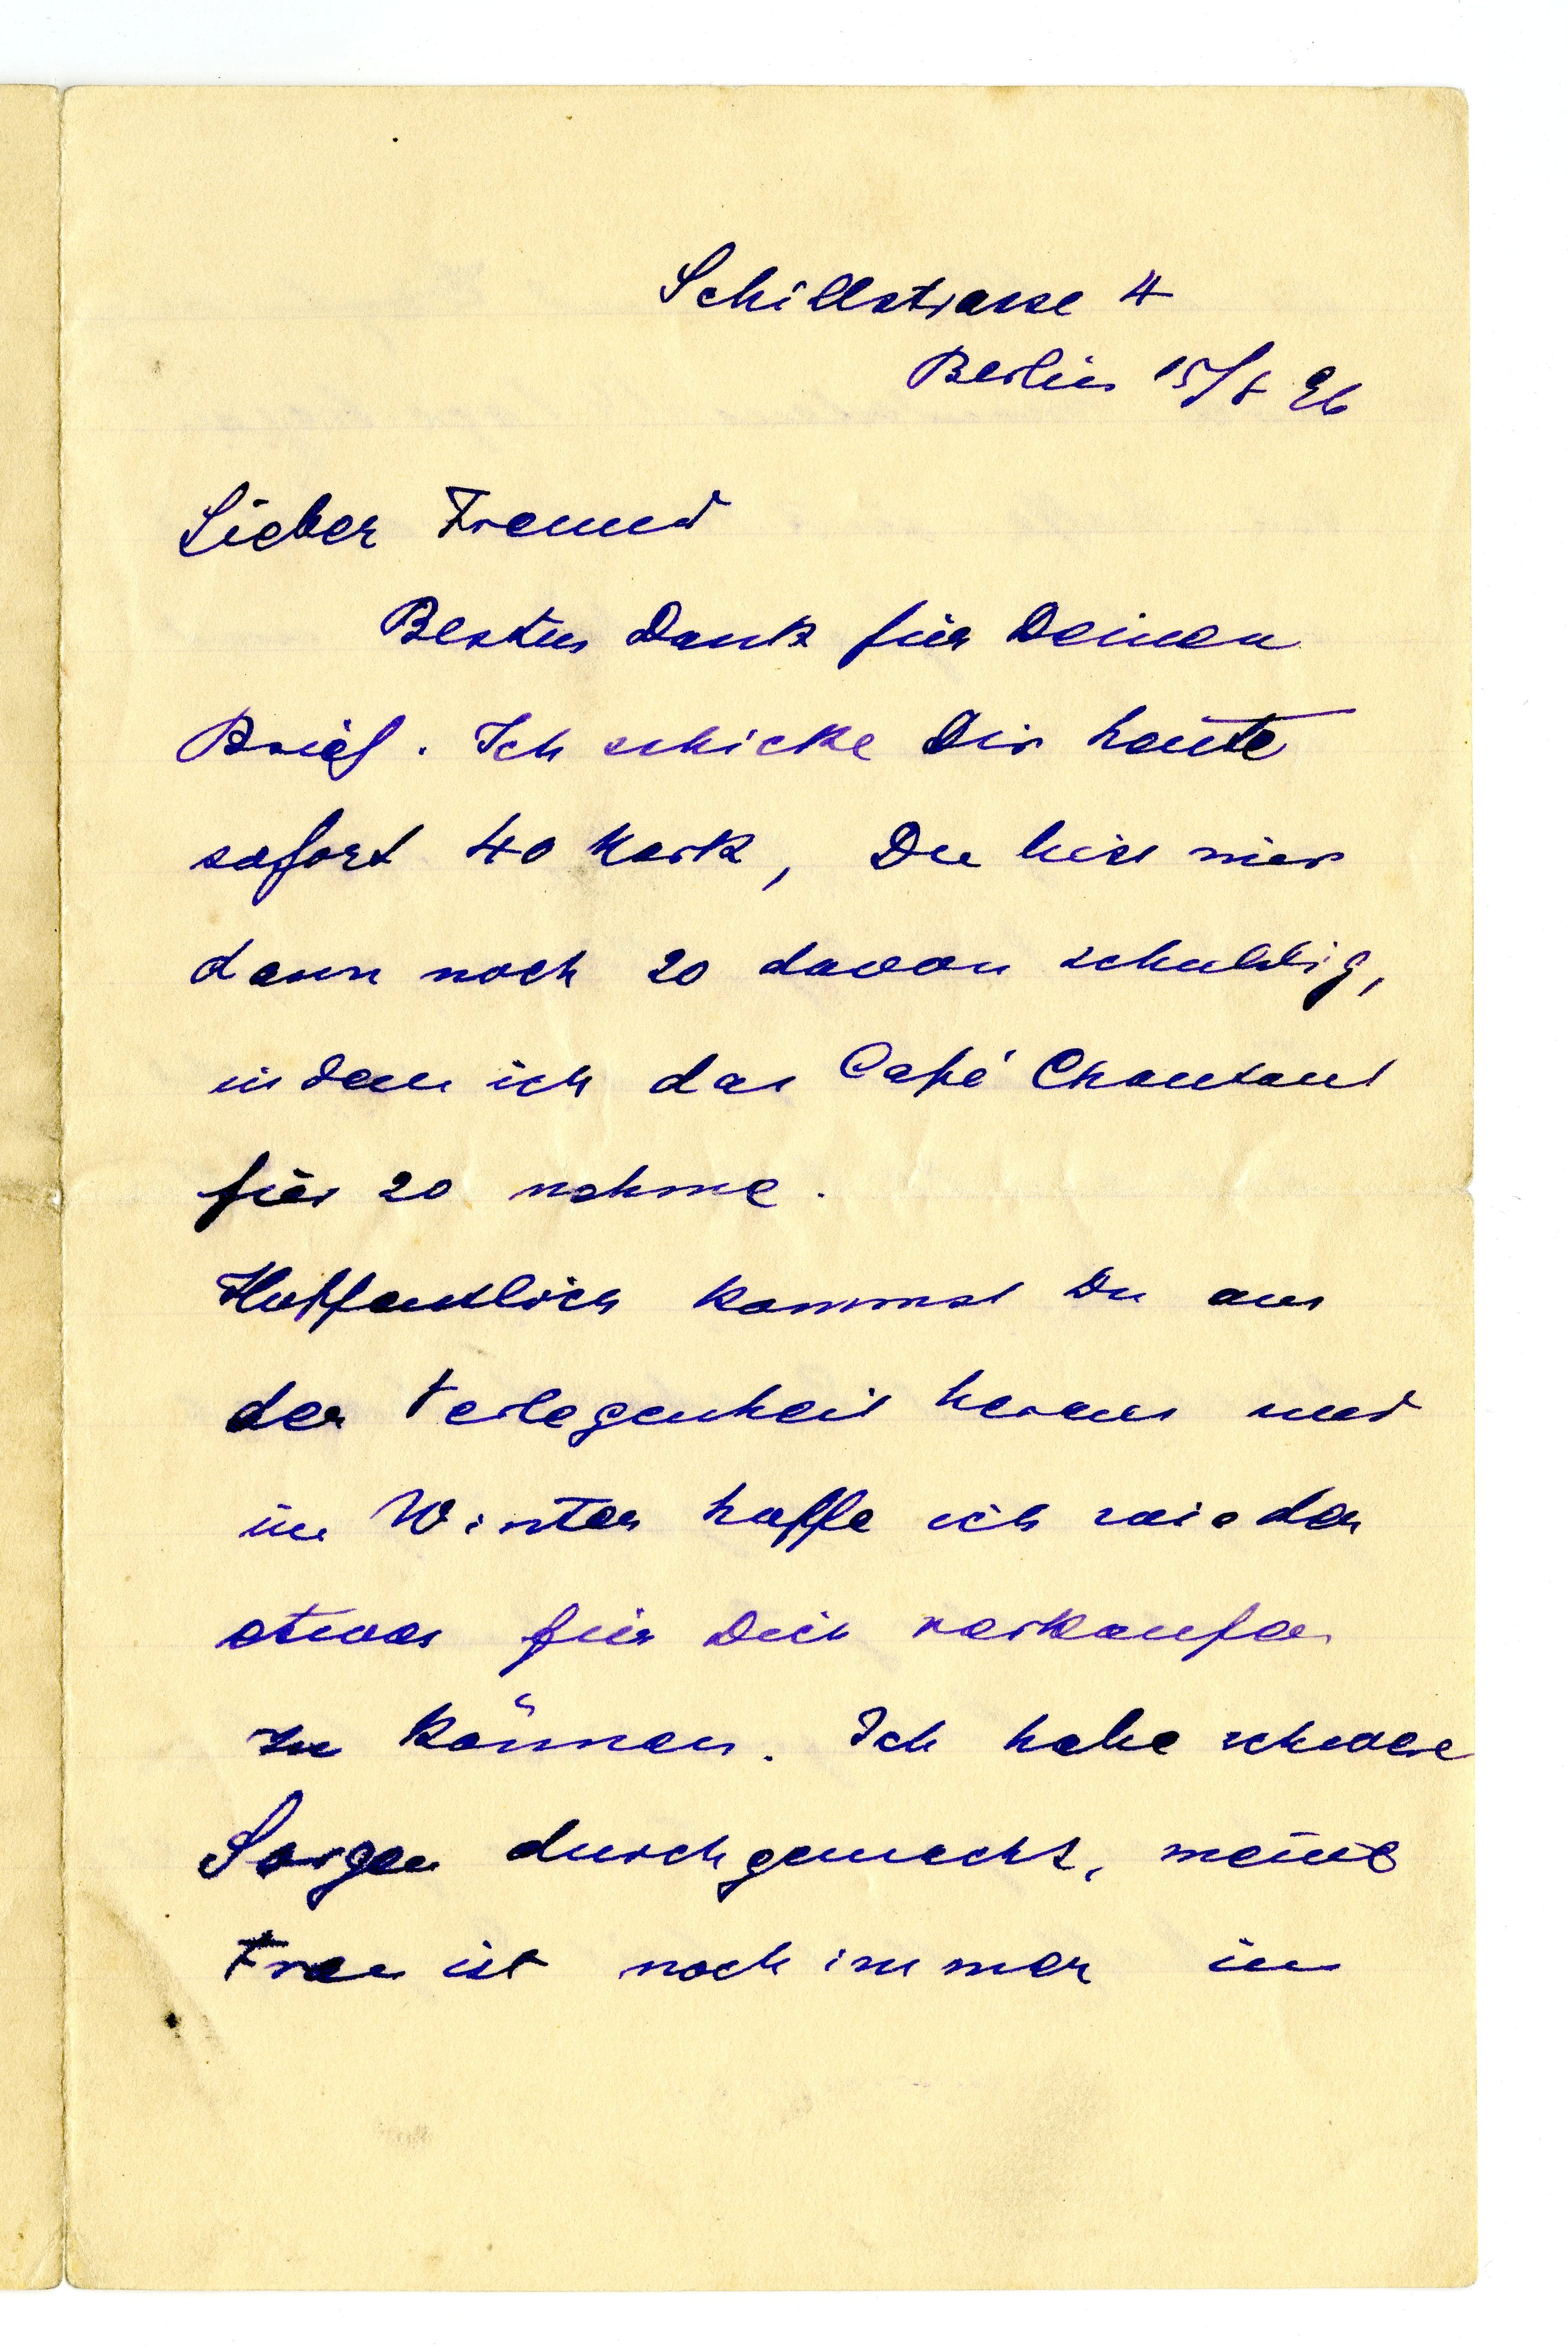 Schillstrasse 4
Berlin 15/8 96
Lieber Freund
Besten Dank für Deinen
Brief. Ich schicke Dir heute
sofort 40 Mark, Du bist mir
dann noch 20 davon schuldig,
indem ich das Café Chantant
für 20 nehme.
Hoffentlich kommst Du aus
der Verlegenheit heraus und
im Winter hoffe ich wieder
etwas für Dich verkaufen
zu können. Ich habe schwere
Sorgen durchgemacht, meine
Frau ist noch immer in